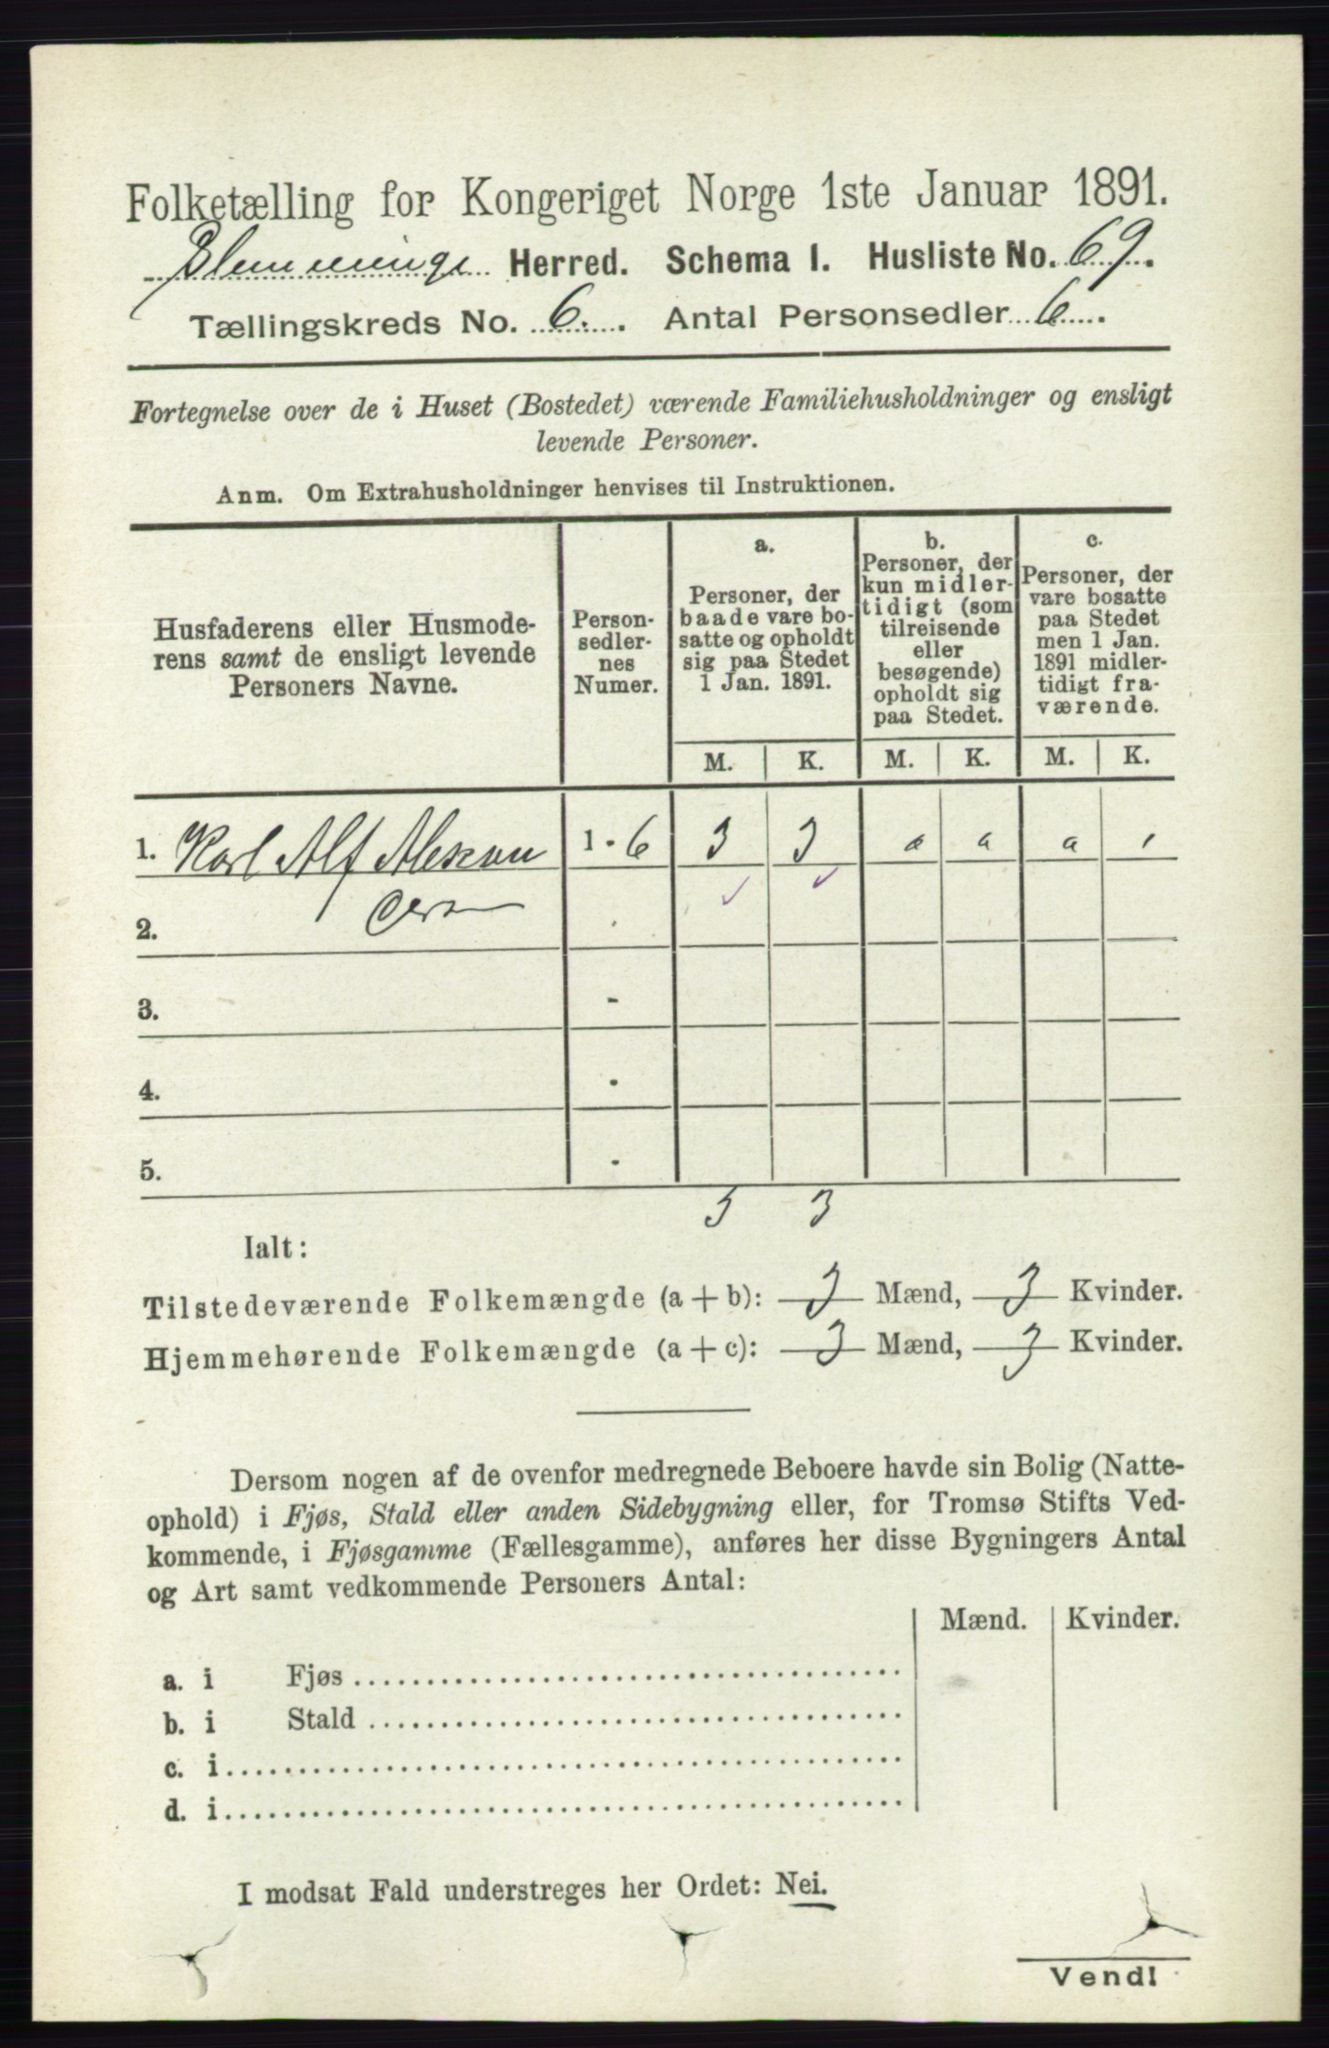 Folketælling for Kongeriget Norge 1ste Januar 1891.
Herred. Schema I. Husliste No. 69.
Tællingskreds No. 6. Antal Personsedler 6.
Fortegnelse over de i Huset (Bostedet) værende Familiehusholdninger og ensligt
levende Personer.
Anm. Om Extrahusholdninger henvises til Instruktionen.
Husfaderens eller Husmode-
rens samt de ensligt levende
Personers Navne.
Person-
sedler-
nes
Numer.
a.
Personer, der
baade vare bo-
satte og opholdt
sig paa Stedet
1 Jan. 1891.
b.
Personer, der
kun midler-
tidigt (som
tilreisende
eller
besøgende)
opholdt sig
paa Stedet.
c.
Personer, der
vare bosatte
paa Stedet
men 1 Jan.
1891 midler-
tidigt fra-
værende.
M. K. M. K. M. K.
1. Karl Alf 1 - 6 3 3
2.
3. -
4. -
5. -
3 3
Ialt:
Tilstedeværende Folkemængde (a + b): 3 Mænd, 3 Kvinder.
Hjemmehørende Folkemængde (a + c): 3 Mænd, 3 Kvinder.
Dersom nogen af de ovenfor medregnede Beboere havde sin Bolig (Natte-
ophold) i Fjøs, Stald eller anden Sidebygning eller, for Tromsø Stifts Ved-
kommende, i Fjøsgamme (Fællesgamme), anføres her disse Bygningers Antal
og Art samt vedkommende Personers Antal:
Mænd. Kvinder.
a. i Fjøs
b. i Stald
c. i
d. i
I modsat Fald understreges her Ordet: Nei.
Vend!